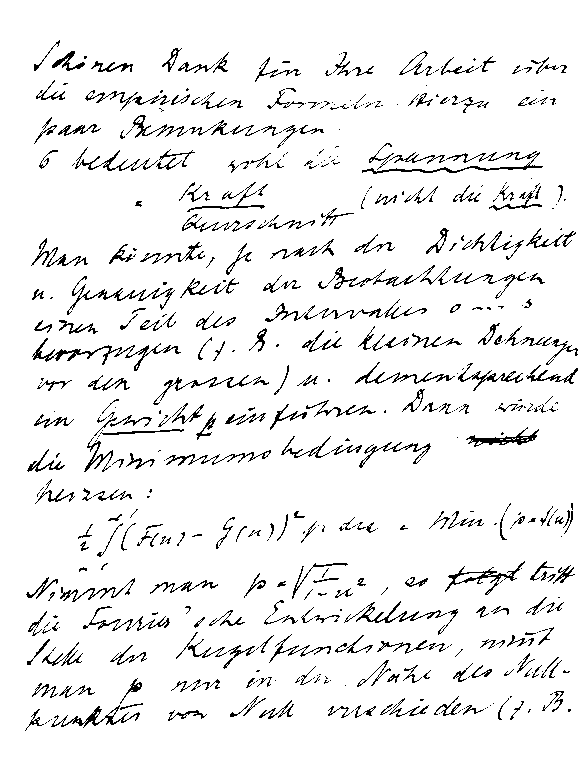 Schönen Dank für Ihre Arbeit über
die empirischen Formeln. Hierzu ein
paar Bemerkungen.
σ bedeutet wohl die Spannung
" Kraft / Querschnitt (nicht die Kraft).
Man könnte, je nach der Dichtigkeit
u. Genauigkeit der Beobachtungen
einen Teil des Intervalles 0 --- s
bevorzugen (z. B. die kleinen Dehnungen
vor den grossen) u. dementsprechend
ein Gewicht p einführen. Dann würde
die Minimumsbedingung nicht
heissen:
½ ∫ (F(u) - G(u))² p du = Min. (p=f(u))
Nimmt man p = √1/1-u², so folgt tritt
die Fourier'sche Entwickelung an die
Stelle der Kugelfunctionen, nimmt
man p nur in der Nähe des Null-
punktes von Null verschieden (z. B.